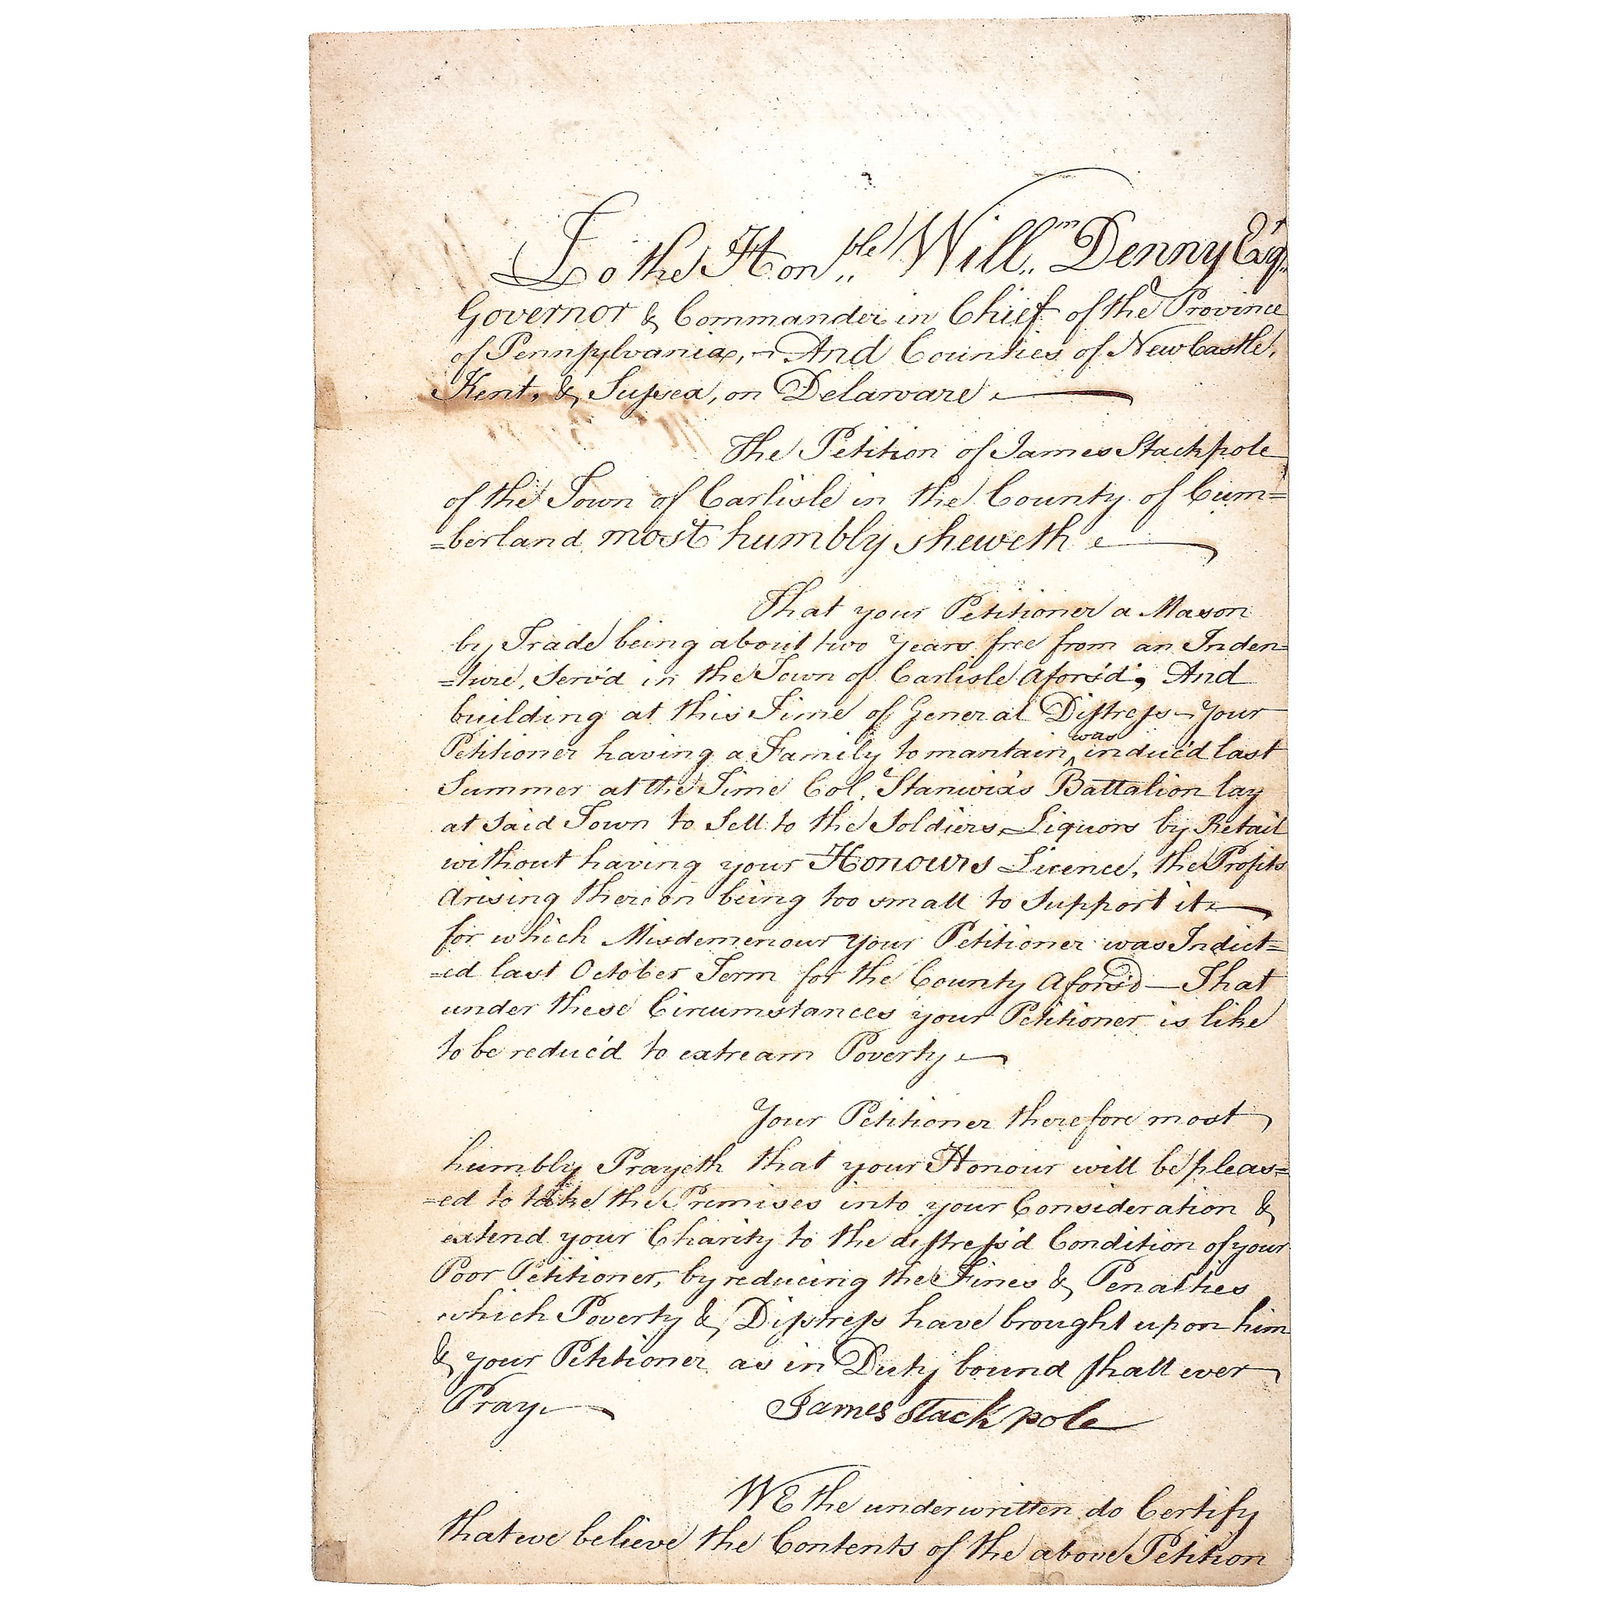 To the Hon.ble Will.m Denny Esqr.
Governor & Commander in Chief of the Province
of Pennsylvania, – And Counties of New Castle,
Kent, & Sussex, on Delaware.
The Petition of James Stackpole
of the Town of Carlisle in the County of Cum=
=berland most humbly sheweth
That your Petitioner a Mason
by Trade being about two Years free from an Inden=
=ture, Serv'd in the Town of Carlisle Afors'd, And
building at this Time of General Distress – Your
Petitioner having a Family to mantain, ^was induc'd last
Summer at the Time Col. Stanwix's Battalion lay
at Said Town to Sell to the Soldiers Liquors by Retail
without having your Honours Licence, the Profits
Arising thereon being too small to Support it
for which Misdemenour your Petitioner was Indict=
=ed last October Term for the County Afors'd – That
under these Circumstances your Petitioner is like
to be reduc'd to extream Poverty.
Your Petitioner therefore most
humbly Prayeth that your Honour will be pleas=
=ed to take the Premises into your Consideration &
extend your Charity to the distress'd Condition of your
Poor Petitioner, by reducing the Fines & Penalties
which Poverty & Distress have brought upon him
& your Petitioner as in Duty bound shall ever
Pray. James Stackpole
WE the underwritten do Certify
that we believe the Contents of the above Petition